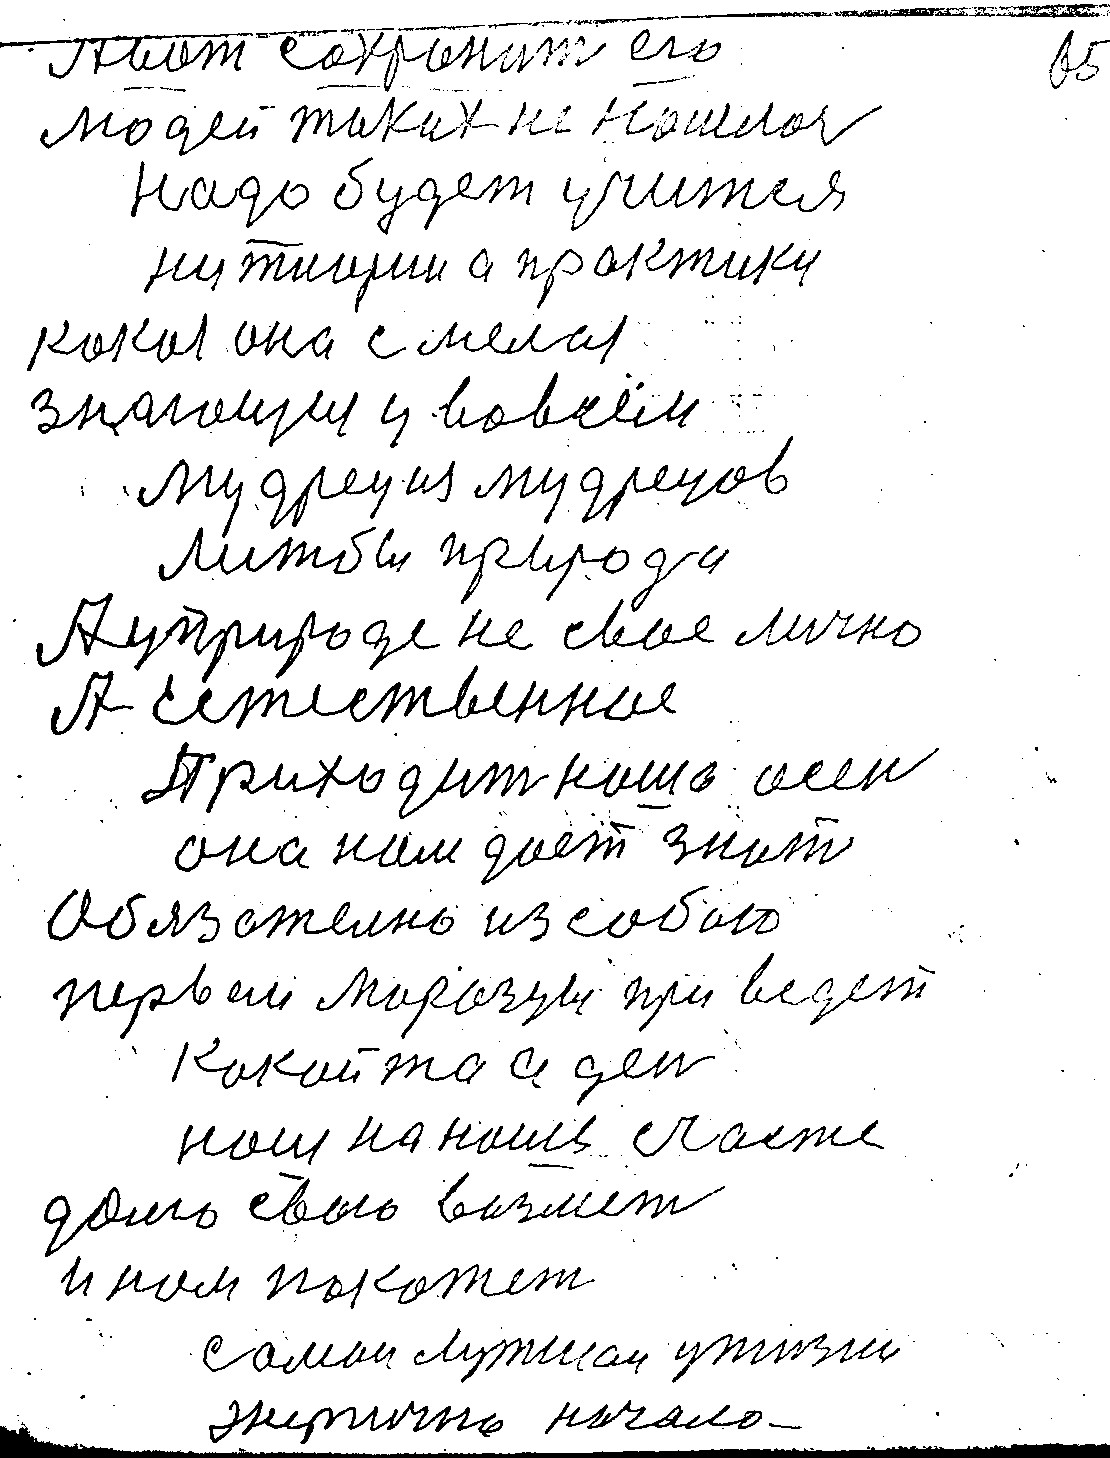 А вот сохранит его
65
людей таких не нашлос
Надо будет учится
ни тиории а практики
кокоя она смелая
знающии и вовсём
Мудрец из мудрецов
Литбы природа
А уприроде не свое лично
А естественное
Приходит наша осен
она нам дает знат
Обязателно изсобою
первыи морозуи при ведет
Кокой та и ден
нам на наше счасте
долю свою возмет
и нам покажет
самаи лутшаи ужизни
энергично начало